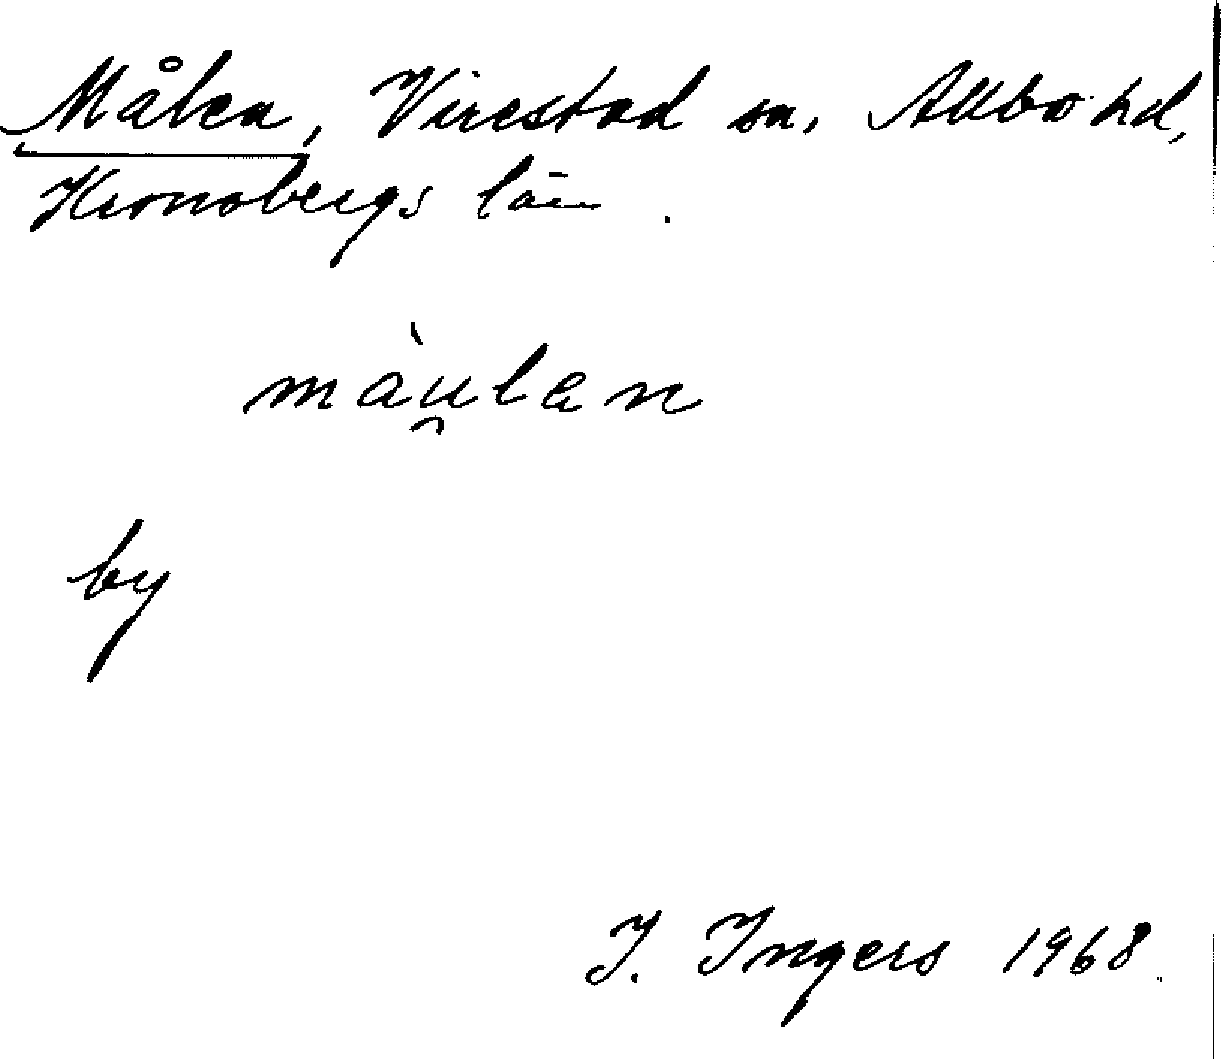 Målen, Virestad sn, Allbo hd,
Kronobergs län.
màu̯lan
by
I. Ingers 1968.